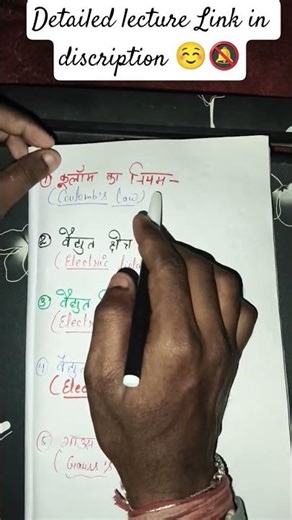 Detailed lecture Link in
discription ☺️🔕
① कूलॉम का नियम-
(Coulomb's Law)
② वैद्युत क्षेत्र
(Electric
③ वैद्युत
④
⑤ गाउस
(Gauss's